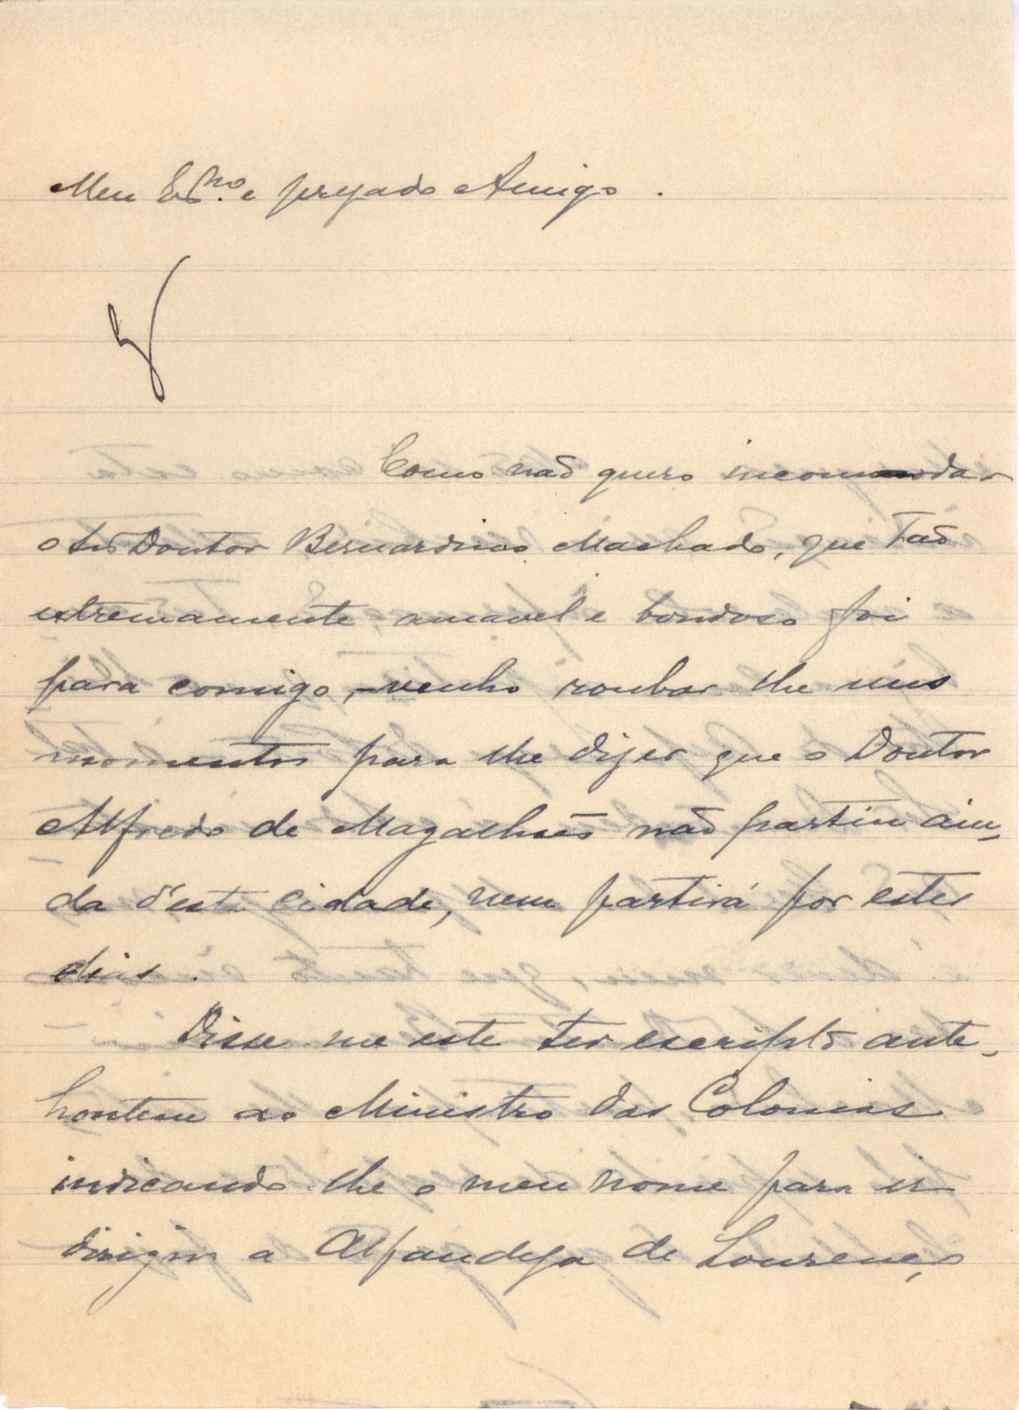 Meu Exmo. e prezado Amigo.
Como não quero incomodar
o Snr Doutor Bernardino Machado, que tão
extremamente, amavel e bondoso foi
para comigo, venho roubar lhe uns
momentos para lhe dizer que o Doutor
Alfredo de Magalhães não partiu ain-
da d'esta cidade, nem partirá por estes
dias.
Disse me este ter escripto ante-
hontem ao Ministro das Colonias
indicando lhe o meu nome para ir
dirigir a Alfandega de Lourenço